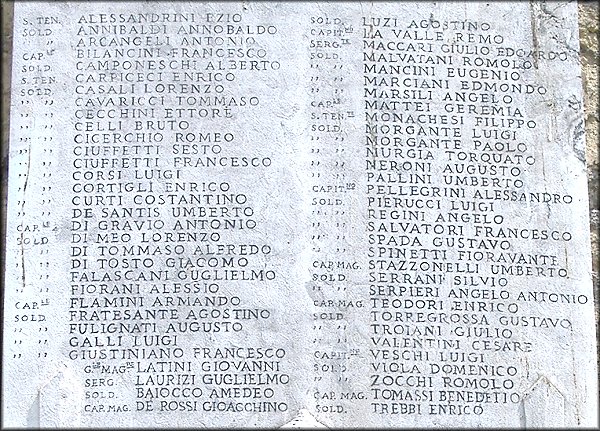 S. TEN. ALESSANDRINI EZIO
SOLD. ANNIBALDI ANNOBALDO
" " ARCANGELI ANTONIO
CAP.LE BILANCINI FRANCESCO
SOLD. CAMPONESCHI ALBERTO
S. TEN. CARPICECI ENRICO
SOLD. CASALI LORENZO
" " CAVARICCI TOMMASO
" " CECCHINI ETTORE
" " CELLI BRUTO
" " CICERCHIO ROMEO
" " CIUFFETTI SESTO
" " CIUFFETTI FRANCESCO
" " CORSI LUIGI
" " CORTIGLI ENRICO
" " CURTI COSTANTINO
" " DE SANTIS UMBERTO
CAP.LE DI GRAVIO ANTONIO
SOLD. DI MEO LORENZO
" " DI TOMMASO ALFREDO
" " DI TOSTO GIACOMO
" " FALASCANI GUGLIELMO
" " FIORANI ALESSIO
CAP.LE FLAMINI ARMANDO
SOLD. FRATESANTE AGOSTINO
" " FULIGNATI AUGUSTO
" " GALLI LUIGI
" " GIUSTINIANO FRANCESCO
LATINI GIOVANNI
SERG. LAURIZI GUGLIELMO
SOLD. BAIOCCO AMEDEO
CAP. MAG. DE ROSSI GIOACCHINO
SOLD. LUZI AGOSTINO
CAPIT.NO LA VALLE REMO
SERG.TE MACCARI GIULIO EDOARDO
SOLD. MALVATANI ROMOLO
" " MANCINI EUGENIO
" " MARCIANI EDMONDO
" " MARSILI ANGELO
CAP.LE MATTEI GEREMIA
S. TEN.TE MONACHESI FILIPPO
SOLD. MORGANTE LUIGI
" " MORGANTE PAOLO
" " MURGIA TORQUATO
" " NERONI AUGUSTO
" " PALLINI UMBERTO
CAPIT.NO PELLEGRINI ALESSANDRO
SOLD. PIERUCCI LUIGI
" " REGINI ANGELO
" " SALVATORI FRANCESCO
" " SPADA GUSTAVO
" " SPINETTI FIORAVANTE
CAP. MAG. STAZZONELLI UMBERTO
SOLD. SERRANI SILVIO
" " SERPIERI ANGELO ANTONIO
CAP. MAG. TEODORI ENRICO
SOLD. TORREGROSSA GUSTAVO
" " TROIANI GIULIO
" " VALENTINI CESARE
CAPIT.NO VESCHI LUIGI
SOLD. VIOLA DOMENICO
" " ZOCCHI ROMOLO
CAP. MAG. TOMASSI BENEDETTO
SOLD. TREBBI ENRICO